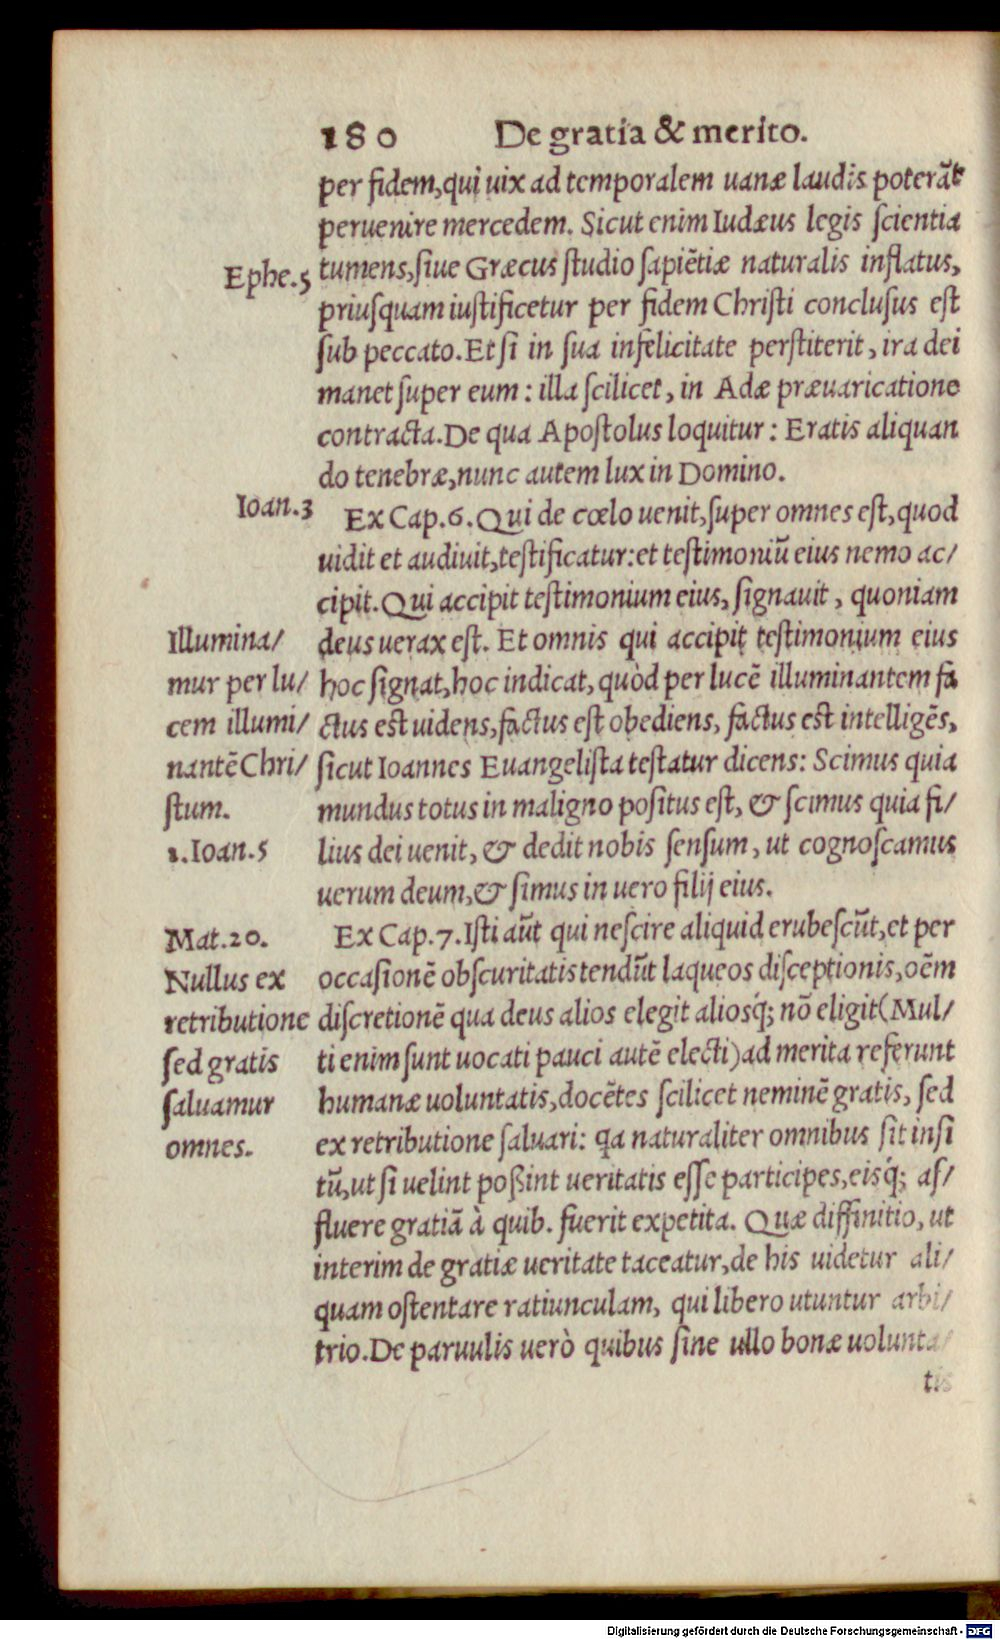 180 De gratia & merito.
per fidem, qui uix ad temporalem uanæ laudis poterāt
peruenire mercedem. Sicut enim Iudæus legis ſcientia
Ephe.5
tumens, ſiue Græcus ſtudio ſapiētiæ naturalis inflatus,
priuſquam iuſtificetur per fidem Chriſti concluſus eſt
ſub peccato. Et ſi in ſua infelicitate perſtiterit, ira dei
manet ſuper eum: illa ſcilicet, in Adæ præuaricatione
contracta. De qua Apoſtolus loquitur: Eratis aliquan
do tenebræ, nunc autem lux in Domino.
Ioan.3
Ex Cap.6. Qui de cœlo uenit, ſuper omnes eſt, quod
uidit et audiuit, teſtificatur: et teſtimoniū eius nemo ac/
cipit. Qui accipit teſtimonium eius, ſignauit, quoniam
deus uerax eſt. Et omnis qui accipit teſtimonium eius
hoc ſignat, hoc indicat, quòd per lucē illuminantem fa
ctus eſt uidens, factus eſt obediens, factus eſt intelligēs,
ſicut Ioannes Euangeliſta teſtatur dicens: Scimus quia
mundus totus in maligno poſitus eſt, & ſcimus quia fi/
lius dei uenit, & dedit nobis ſenſum, ut cognoſcamus
uerum deum, & ſimus in uero filij eius.
Illumina/
mur per lu/
cem illumi/
nantē Chri/
ſtum.
1.Ioan.5
Ex Cap.7. Iſti aūt qui neſcire aliquid erubeſcūt, et per
occaſionē obſcuritatis tendūt laqueos diſceptionis, oēm
diſcretionē qua deus alios elegit aliosq́; nō eligit (Mul/
ti enim ſunt uocati pauci autē electi) ad merita referunt
humanæ uoluntatis, docētes ſcilicet neminē gratis, ſed
ex retributione ſaluari: qa naturaliter omnibus ſit inſi
tū, ut ſi uelint poßint ueritatis eſſe participes, eisq́; af/
fluere gratiā à quib. fuerit expetita. Quæ diffinitio, ut
interim de gratiæ ueritate taceatur, de his uidetur ali/
quam oſtentare ratiunculam, qui libero utuntur arbi/
trio. De paruulis uerò quibus ſine ullo bonæ uolunta/
tis
Mat.20.
Nullus ex
retributione
ſed gratis
ſaluamur
omnes.
Digitalisierung gefördert durch die Deutsche Forschungsgemeinschaft - DFG